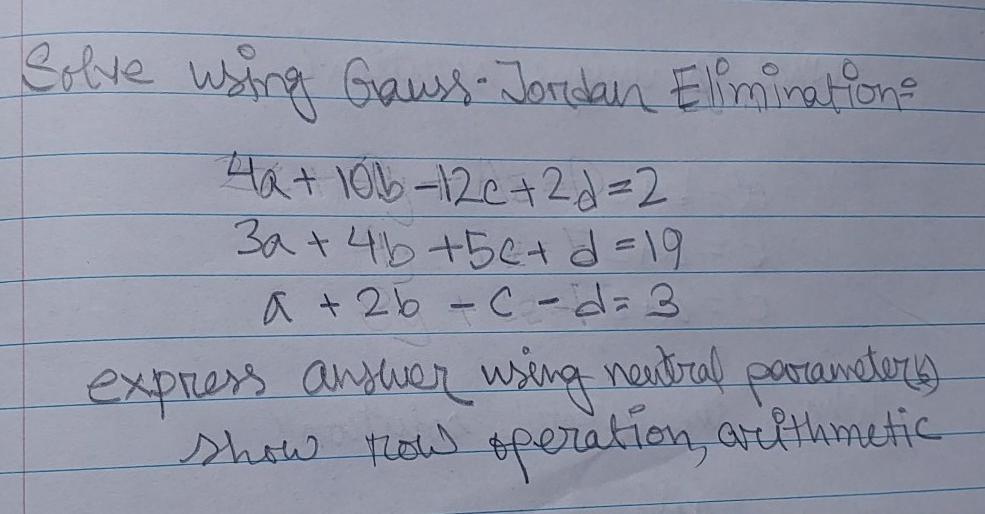 Solve using Gauss-Jordan Elimination:
4a + 10b - 12c + 2d = 2
3a + 4b + 5c + d = 19
a + 2b - c - d = 3
express answer using neutral parameter(s)
show row operation, arithmetic